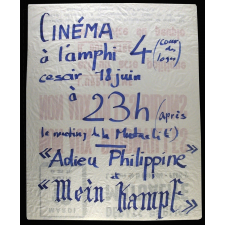 CINÉMA
à l'amphi 4 (cour du
ce soir 18 juin
à 23h (après
le meeting de la Mutualité)
« Adieu Philippine »
et
« Mein Kampf »